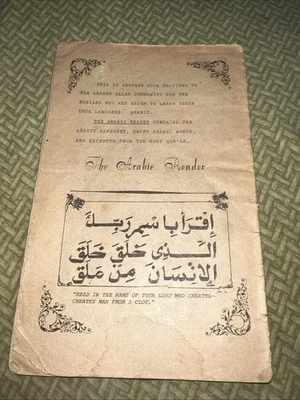 THIS IS ANOTHER BOOK PROVIDED BY
THE ANSARU ALLAH COMMUNITY FOR THE
NUBIANS WHO ARE EAGER TO LEARN THEIR
TRUE LANGUAGE: ARABIC.
THE ARABIC READER CONTAINS THE
ARABIC ALPHABET, SHORT ARABIC WORDS,
AND EXCERPTS FROM THE HOLY QUR'AN.
The Arabic Reader
إقرأ باسم ربك
الذي خلق خلق
الإنسان من علق
"READ IN THE NAME OF YOUR LORD WHO CREATES-
CREATES MAN FROM A CLOT."